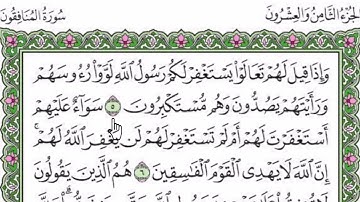 الجزء الثامن والعشرون سورة المنافقون
وَإِذَا قِيلَ لَهُمْ تَعَالَوْا يَسْتَغْفِرْ لَكُمْ رَسُولُ اللَّهِ لَوَّوْا رُءُوسَهُمْ
وَرَأَيْتَهُمْ يَصُدُّونَ وَهُم مُّسْتَكْبِرُونَ ٥ سَوَاءٌ عَلَيْهِمْ
أَسْتَغْفَرْتَ لَهُمْ أَمْ لَمْ تَسْتَغْفِرْ لَهُمْ لَن يَغْفِرَ اللَّهُ لَهُمْ ۚ
إِنَّ اللَّهَ لَا يَهْدِي الْقَوْمَ الْفَاسِقِينَ ٦ هُمُ الَّذِينَ يَقُولُونَ